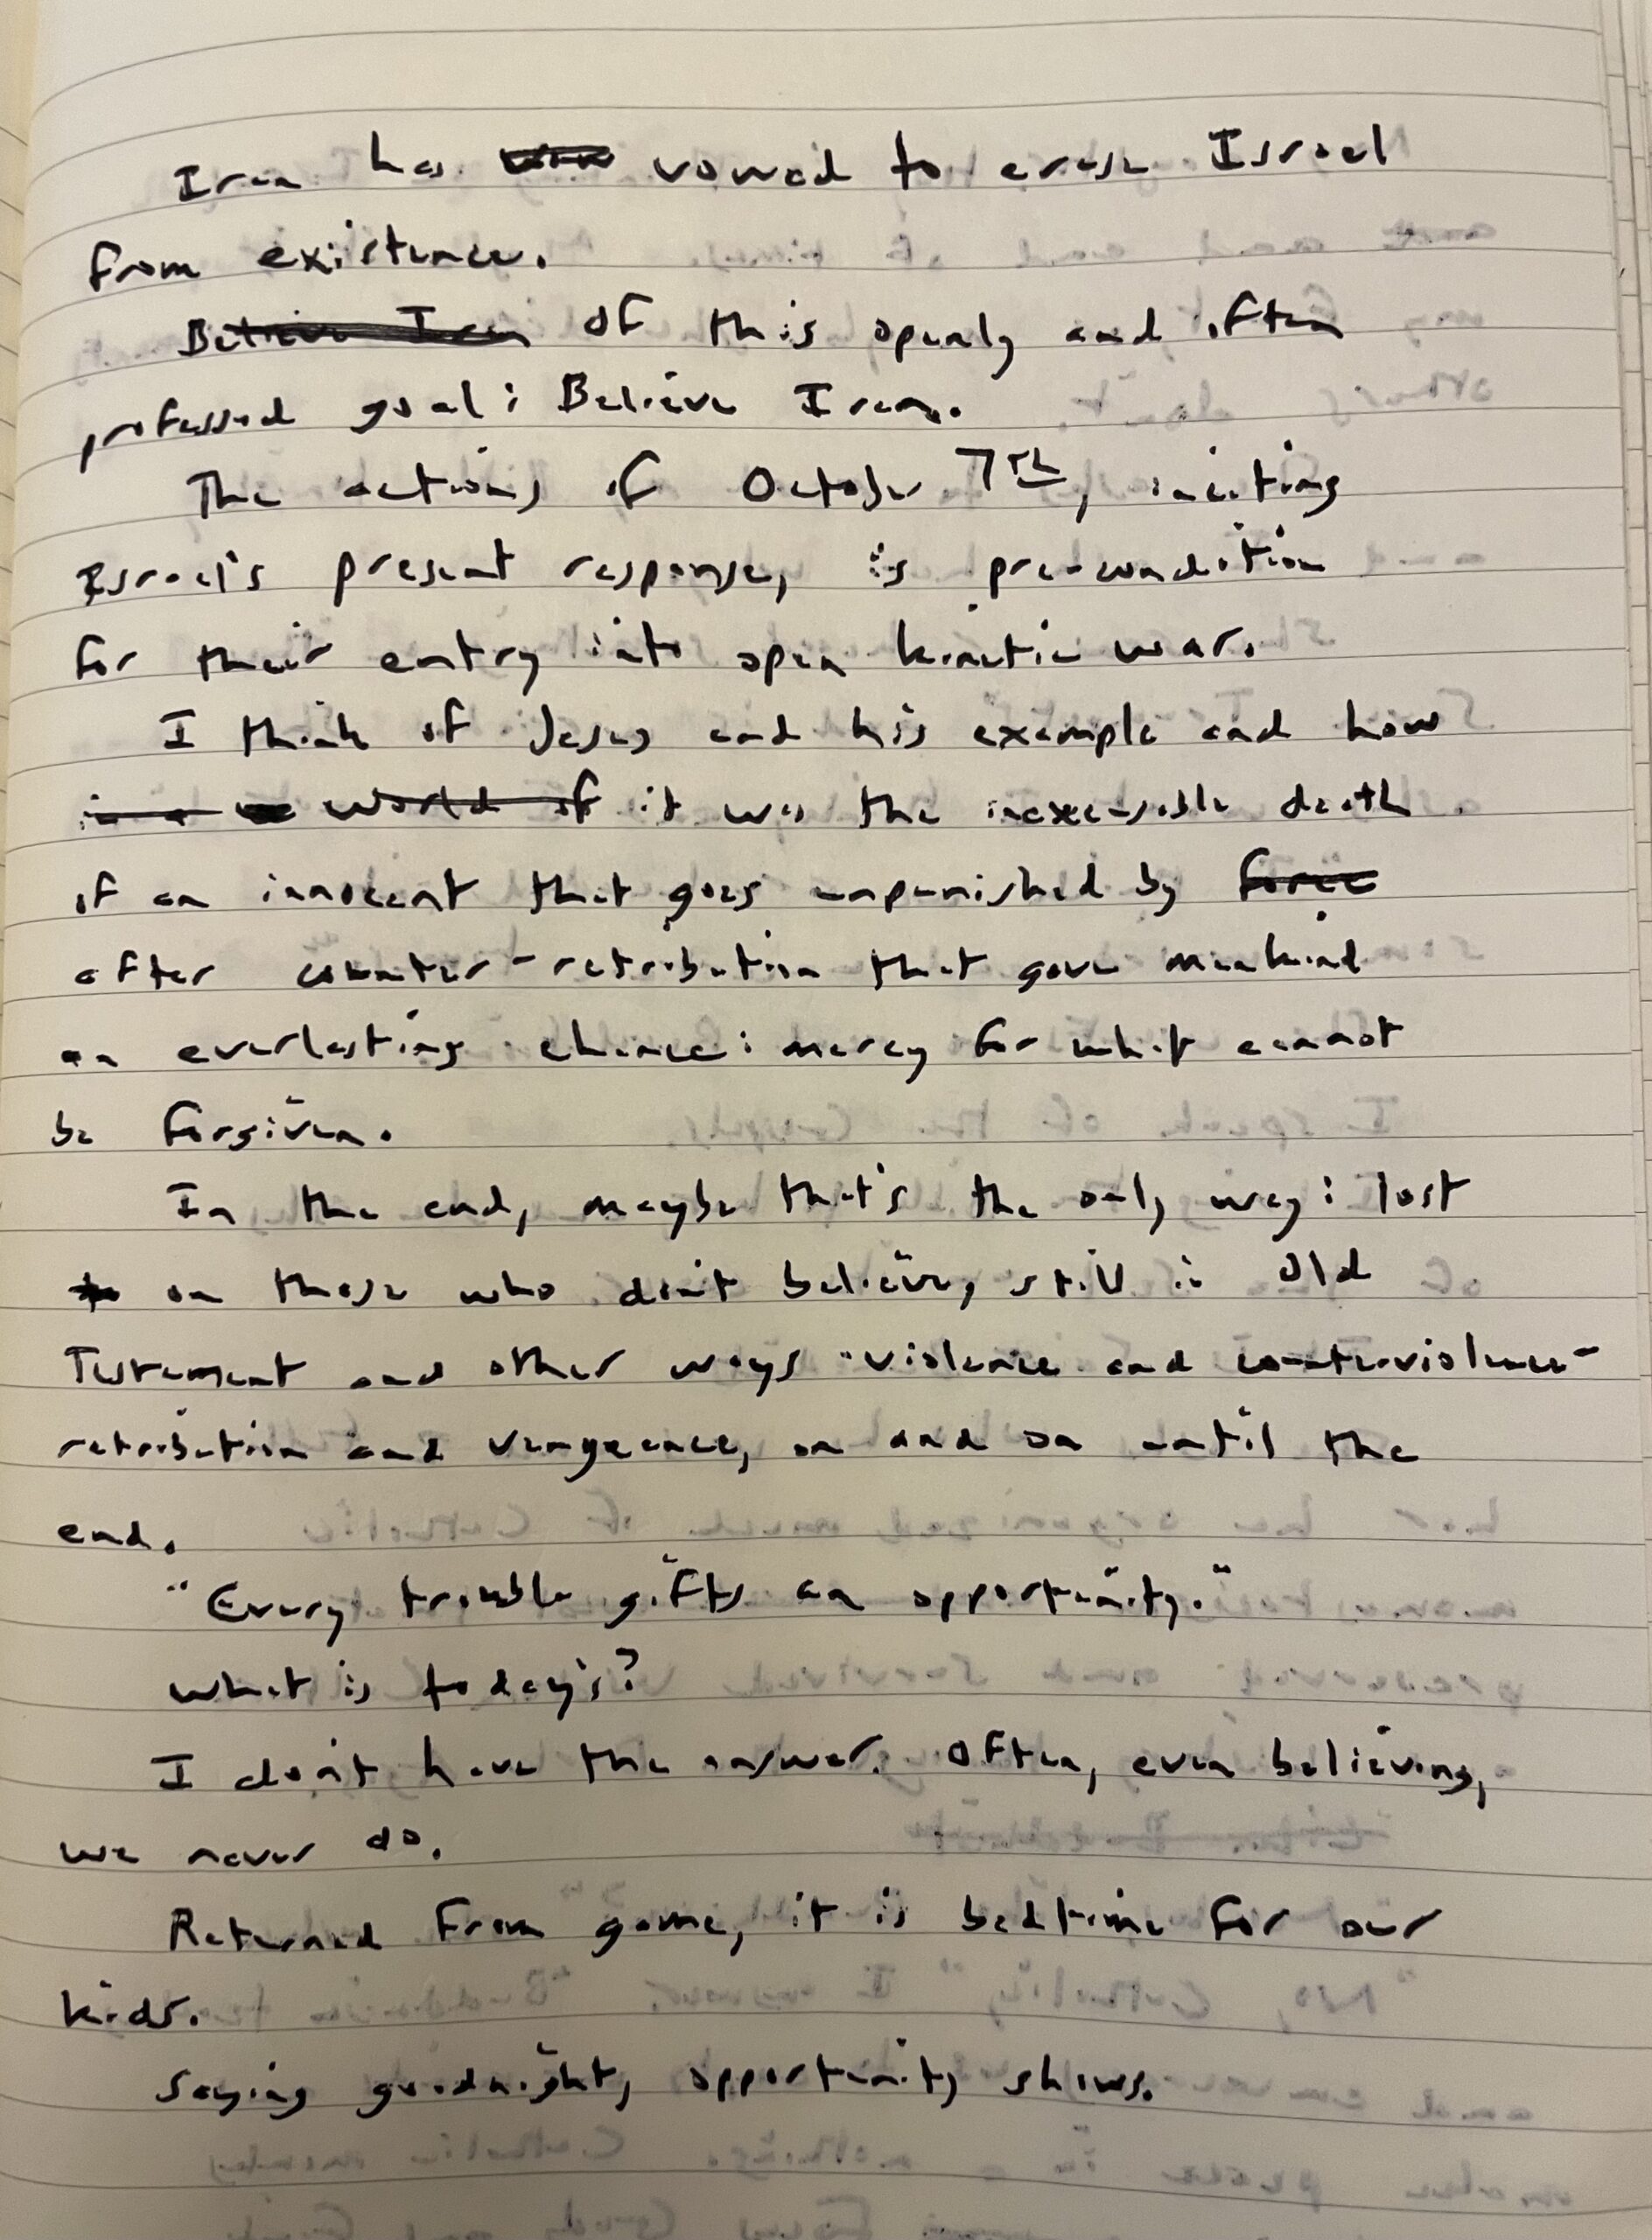 Iran has vowed to erase Israel
from existence.
Believe Iran Of this openly and often
professed goal: Believe Iran.
The actions of October 7th, inciting
Israel's present response, is pre-condition
for their entry into open kinetic war.
I think of Jesus and his example and how
in a world of it was the inexcusable death
of an innocent that goes unpunished by force
after counter-retribution that gave mankind
an everlasting chance: mercy for what cannot
be forgiven.
In the end, maybe that's the only way: lost
on those who don't believe, still in Old
Testament and other ways violence and counterviolence-
retribution and vengeance, on and on until the
end.
"Every trouble gifts an opportunity."
What is today's?
I don't have the answer. Often, even believing,
we never do.
Returned from game, it is bedtime for our
kids.
Saying goodnight, opportunity shows.